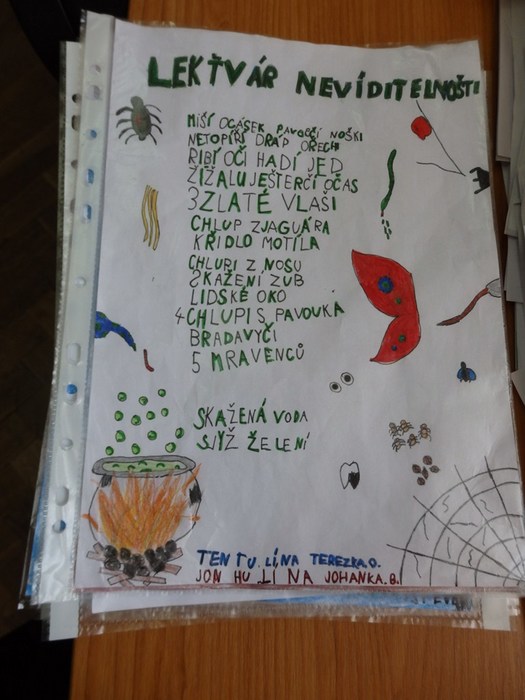 LEKŤVÁR NEVÍDITELNOŠTI
MIŠÍ OCÁSEK PAVOČÍ NOŠKI
NETOPÍŘÍ DRÁP OŘECH
RIBÍ OČI HADÍ JED
ŽÍŽALU JEŠTERČÍ OČAS
3 ZLATÉ VLASI
CHLUP Z JAGUÁRA
KŘÍDLO MOTÍLA
CHLUPI Z NOSU
SKAŽENÍ ZUB
LIDSKÉ OKO
4 CHLUPI S PAVOUKA
BRADAVYČÍ
5 MRAVENCŮ
SKAŽENÁ VODA
SLYŽ ŽELENÍ
TEN TU LÍ NA TEREZKA.O.
JON HU LÍ NA JOHANKA.B.